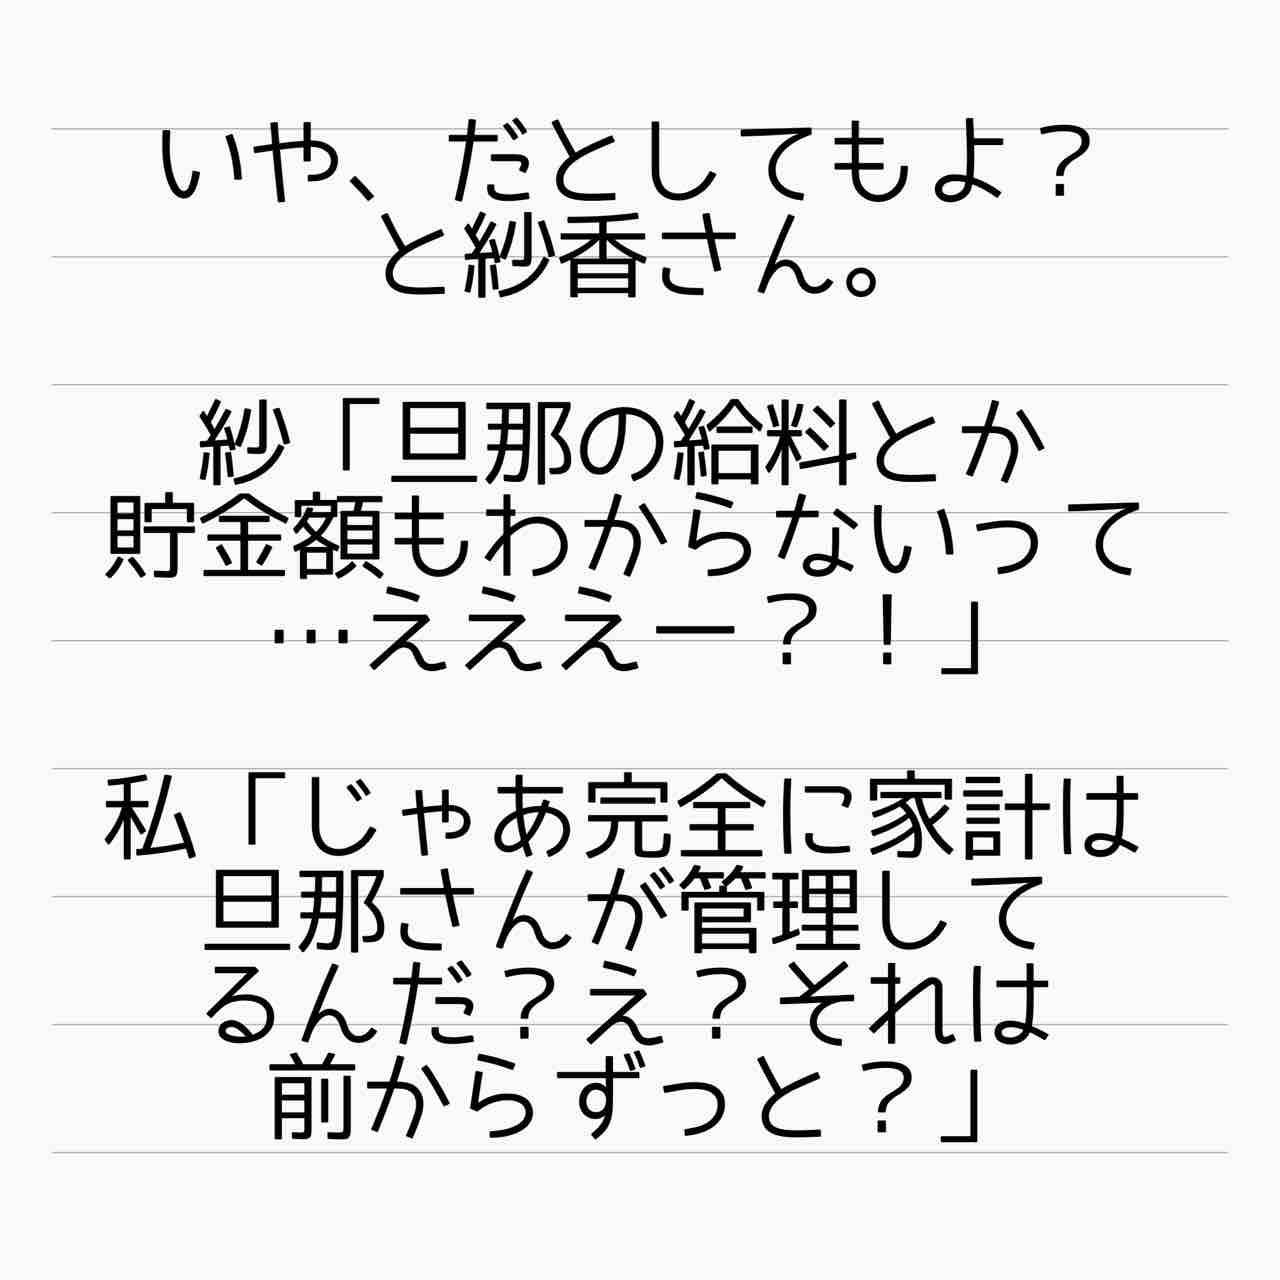 いや、だとしてもよ？
と紗香さん。
紗「旦那の給料とか
貯金額もわからないって
…えええー？！」
私「じゃあ完全に家計は
旦那さんが管理して
るんだ？え？それは
前からずっと？」